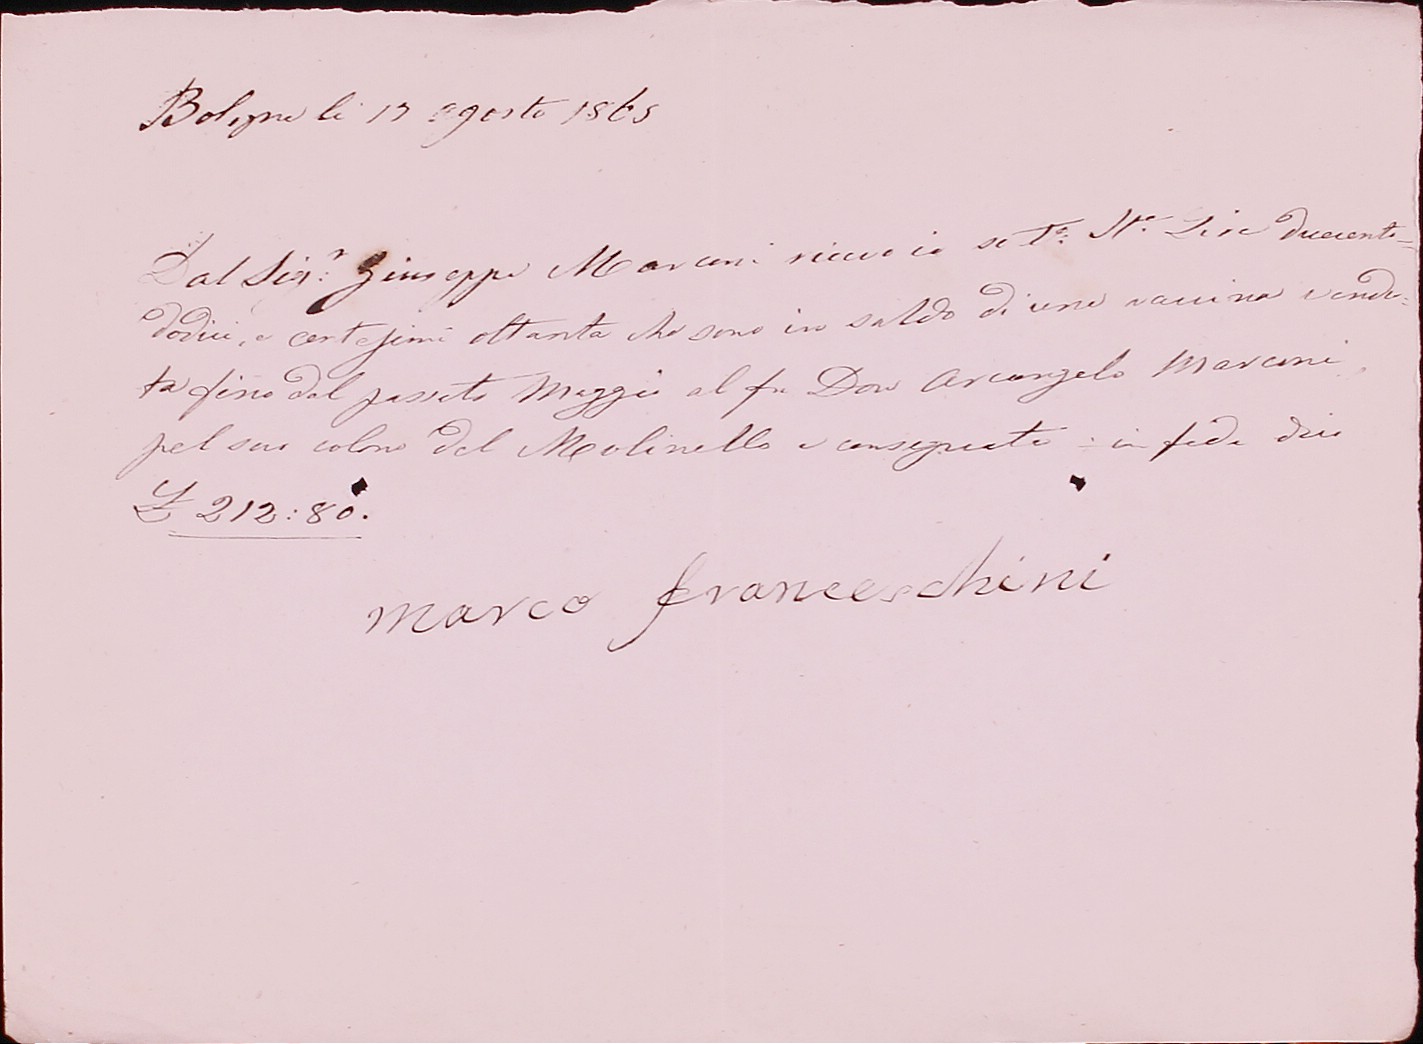 Bologna li 17 agosto 1865
Dal Sig.r Giuseppe Marconi ricevo io sotto Lire duecento=
dodici, e centesimi ottanta che sono in saldo di una vaccina vendu=
ta fino dal passato Maggio al fu Don Arcangelo Marconi
pel suo colono del Molinello e consegnata: in fede dico
£ 212:80.
Marco Franceschini